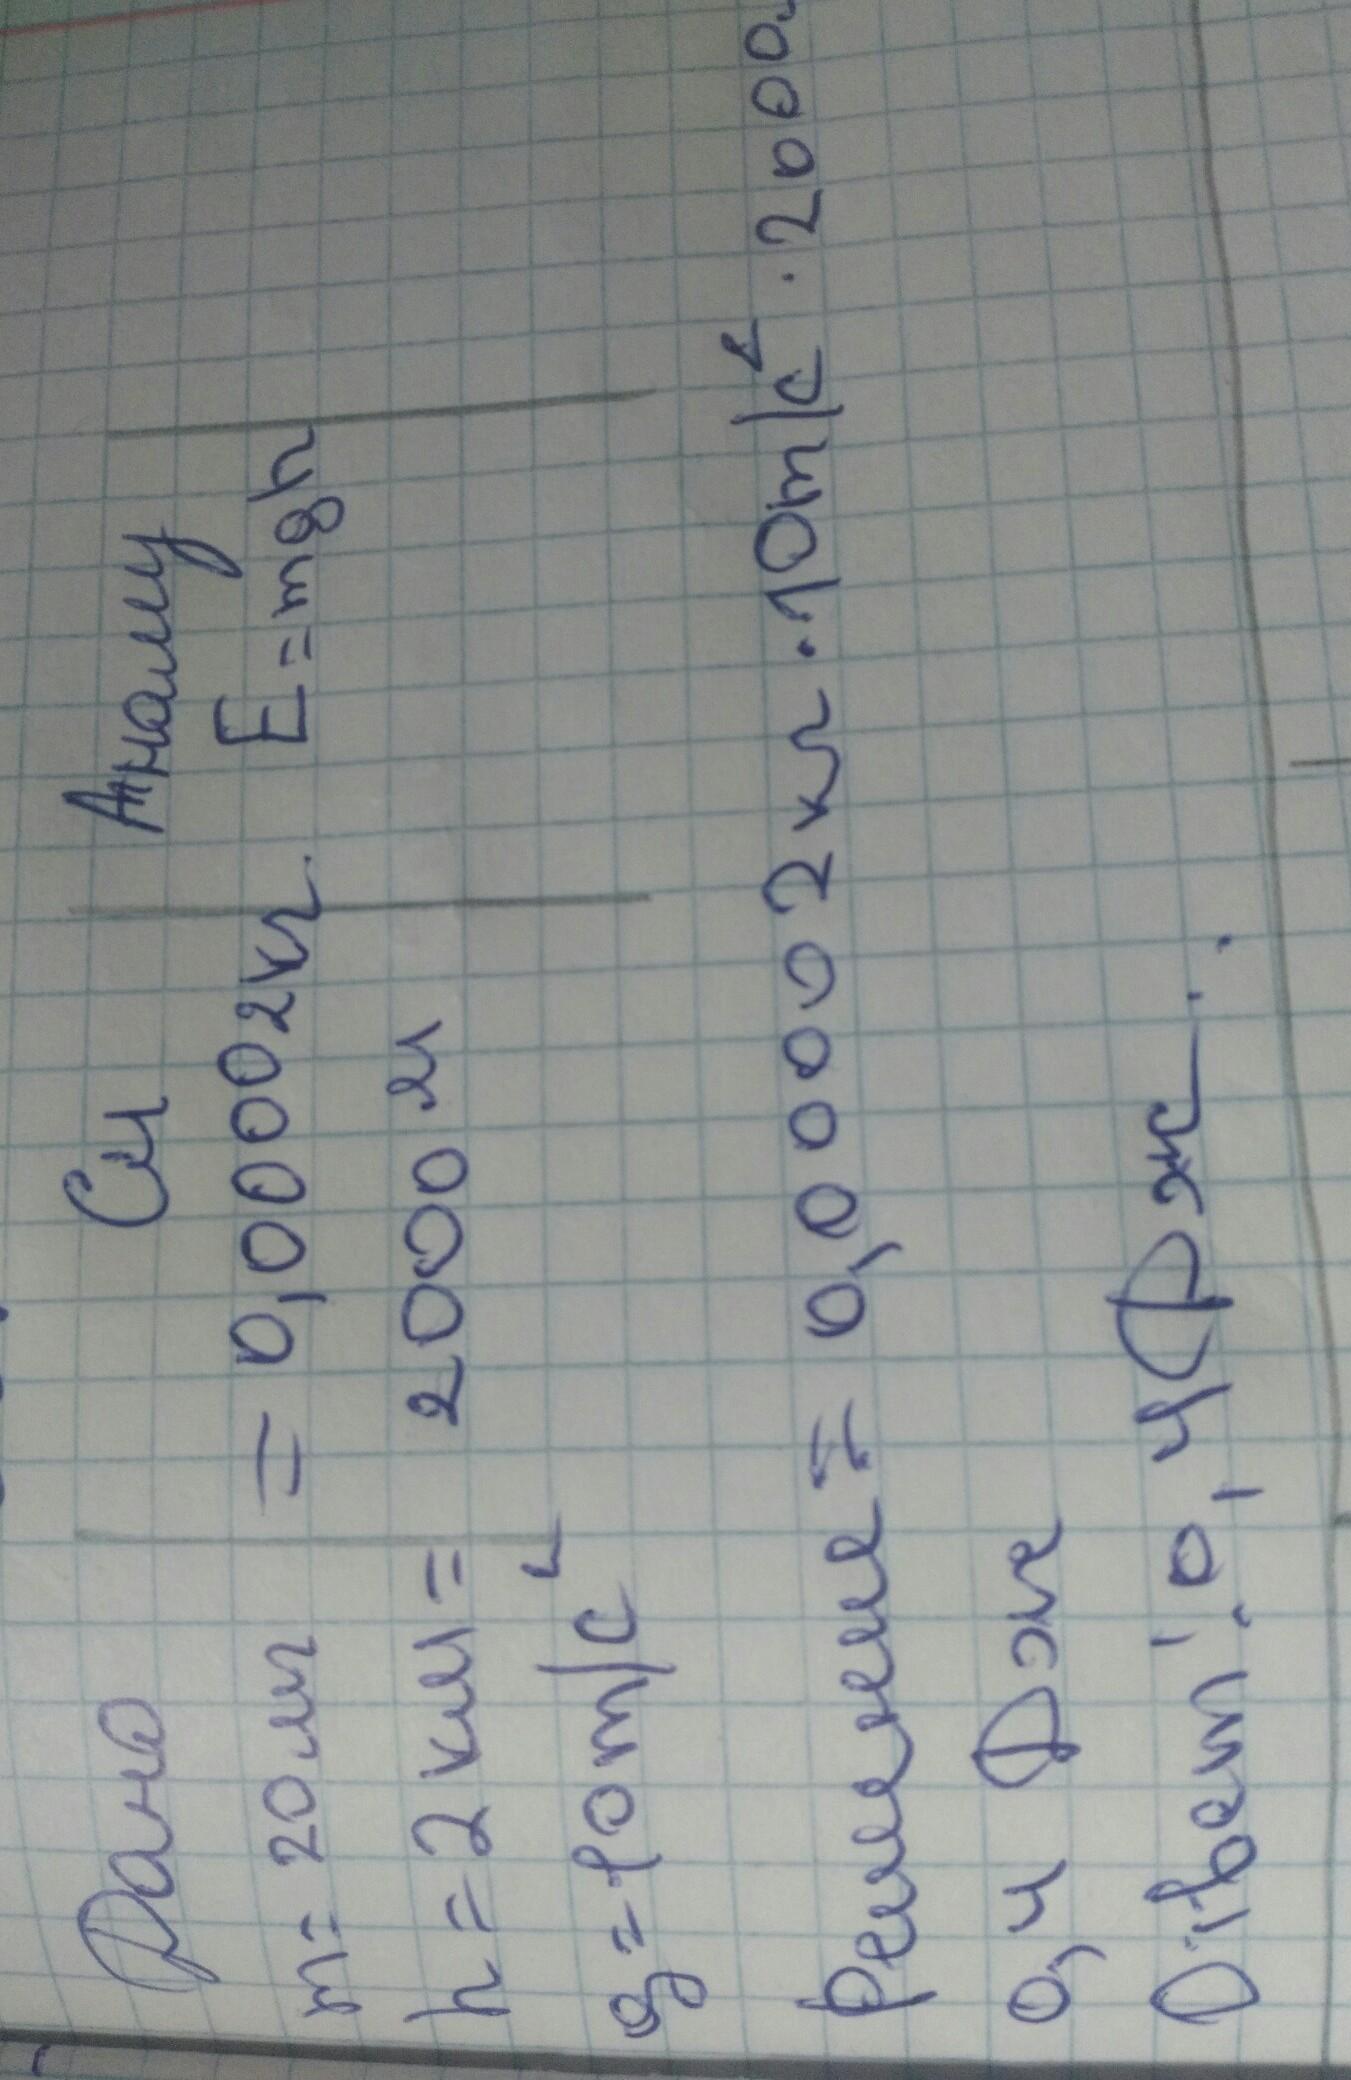 Дано Си Анализ
m = 20 мг = 0,00002 кг E = mgh
h = 2 км = 2000 м
g = 10 m/c²
Решение = 0,00002 кг · 10 m/c² · 2000
0,4 Дж
Ответ: 0,4 Дж.